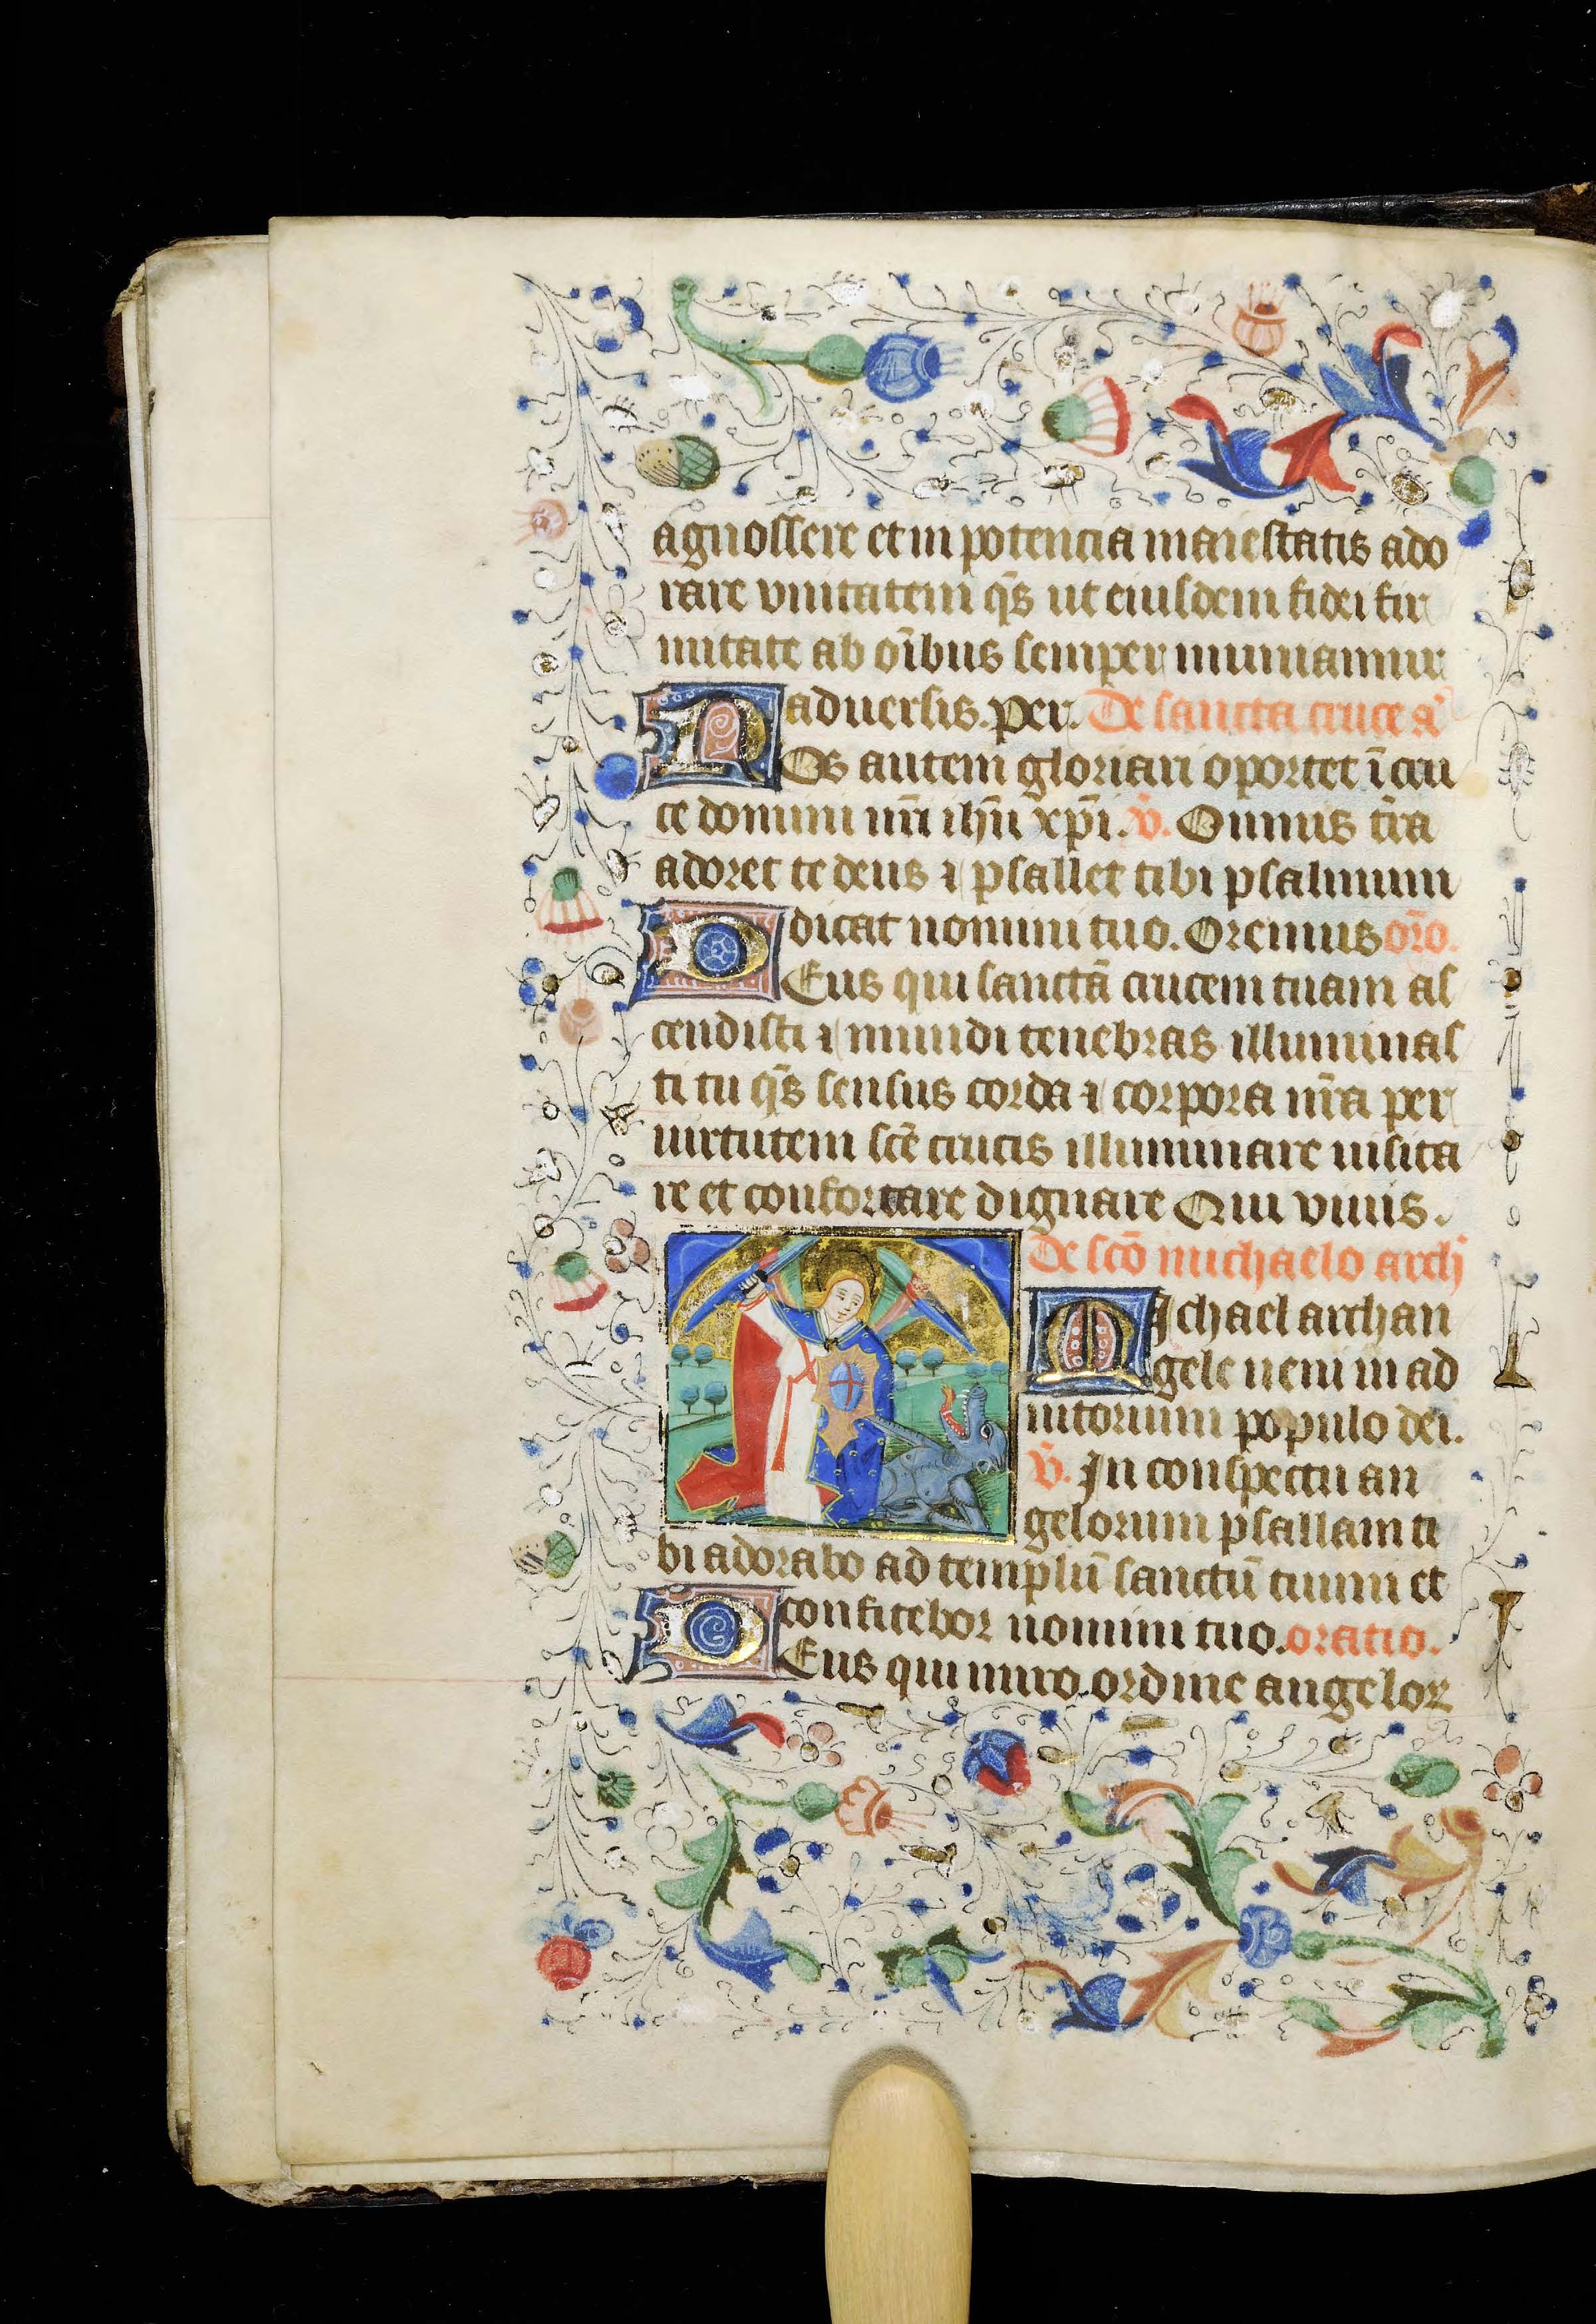 agnoscere et in potencia maiestatis ado
rare vnitatem q̄s ut eiusdem fidei fir
mitate ab oībus semper muniamur
aduersis. per. De sancta cruce a᷑
NOs autem gloriari oportet ī cru
ce domini nr̄i ihū xp̄i. v̄. Omnis t̄ra
adoret te deus ⁊ psallet tibi psalmum
dicat nomini tuo. Oremus or̄o.
DEus qui sanctā crucem tuam as
cendisti ⁊ mundi tenebras illuminas
ti tu q̄s sensus corda ⁊ corpora nr̄a per
uirtutem scē crucis illuminare uisita
re et confortare dignare Qui viuis.
De scō michaelo arch̄
MIchael archan
gele ueni in ad
iutorium populo dei.
v̄. In conspectu an
gelorum psallam ti
bi adorabo ad templū sanctū tuum et
confitebor nomini tuo. oratio.
DEus qui miro ordine angeloꝝ